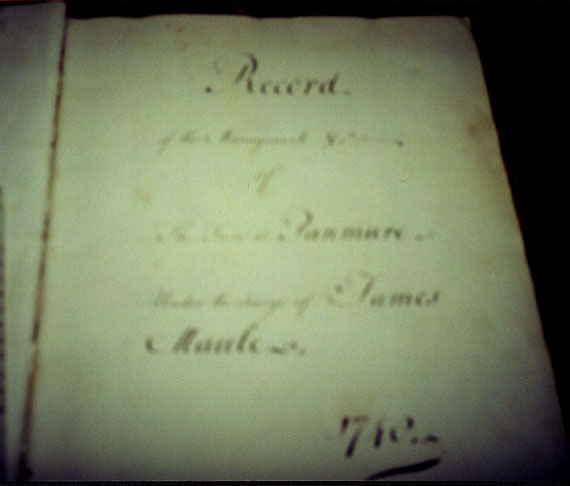 Record.
of the Management
of
The Panmure
Under the charge of James
Maule.
1740.